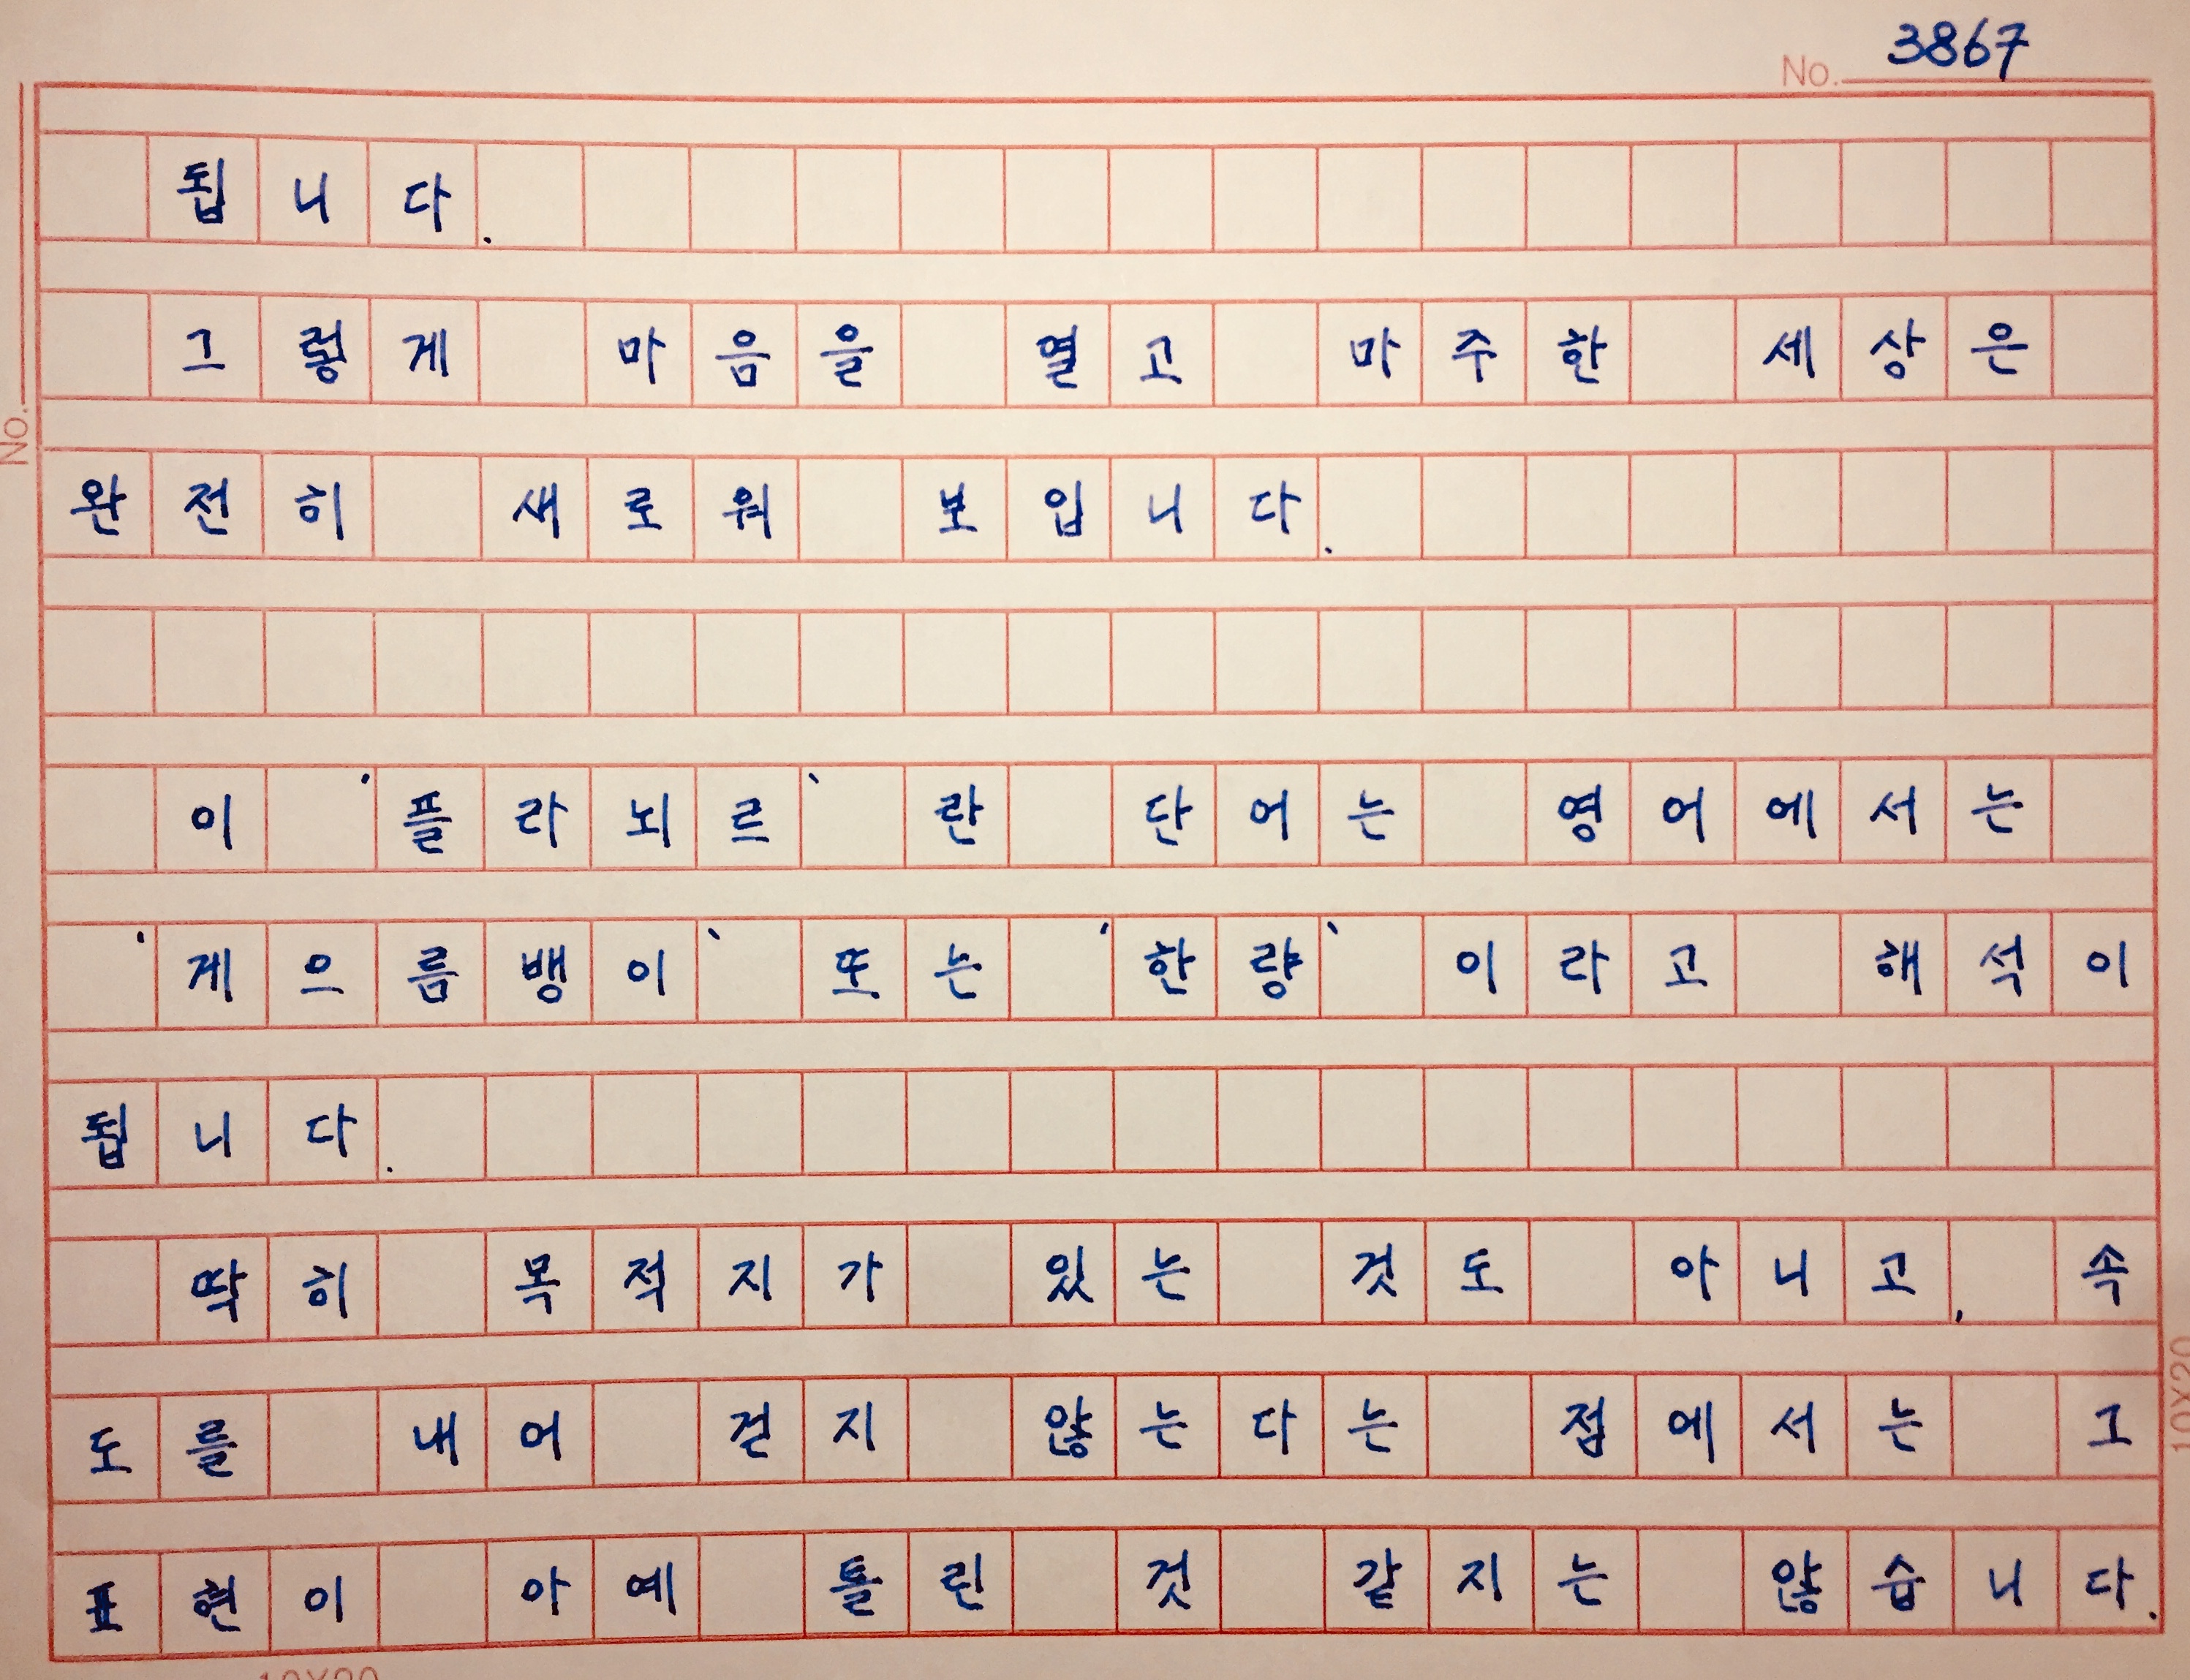 No. 3867
됩니다.
그렇게 마음을 열고 마주한 세상은
완전히 새로워 보입니다.
이 '플라뇌르'란 단어는 영어에서는
'게으름뱅이' 또는 '한량'이라고 해석이
됩니다.
딱히 목적지가 있는 것도 아니고, 속
도를 내어 걷지 않는다는 점에서는 그
표현이 아예 틀린 것 같지는 않습니다.
No.
10X20
10X20